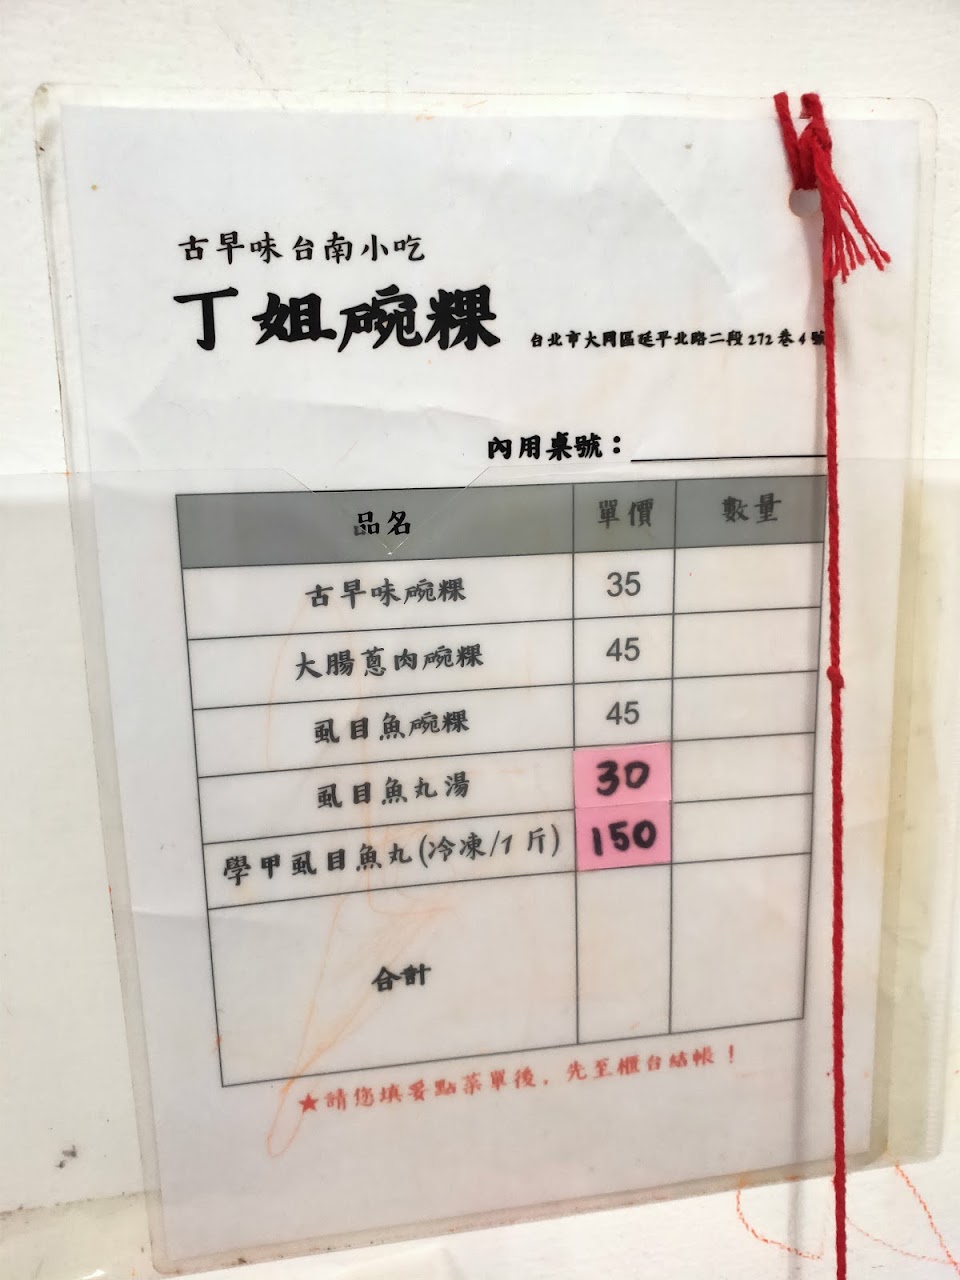 古早味台南小吃
丁姐碗粿
台北市大同區延平北路二段272巷4號
內用桌號：
品名 單價 數量
古早味碗粿 35
大腸蔥肉碗粿 45
虱目魚碗粿 45
虱目魚丸湯 30
學甲虱目魚丸(冷凍/1斤) 150
合計
★請您填妥點菜單後，先至櫃台結帳！